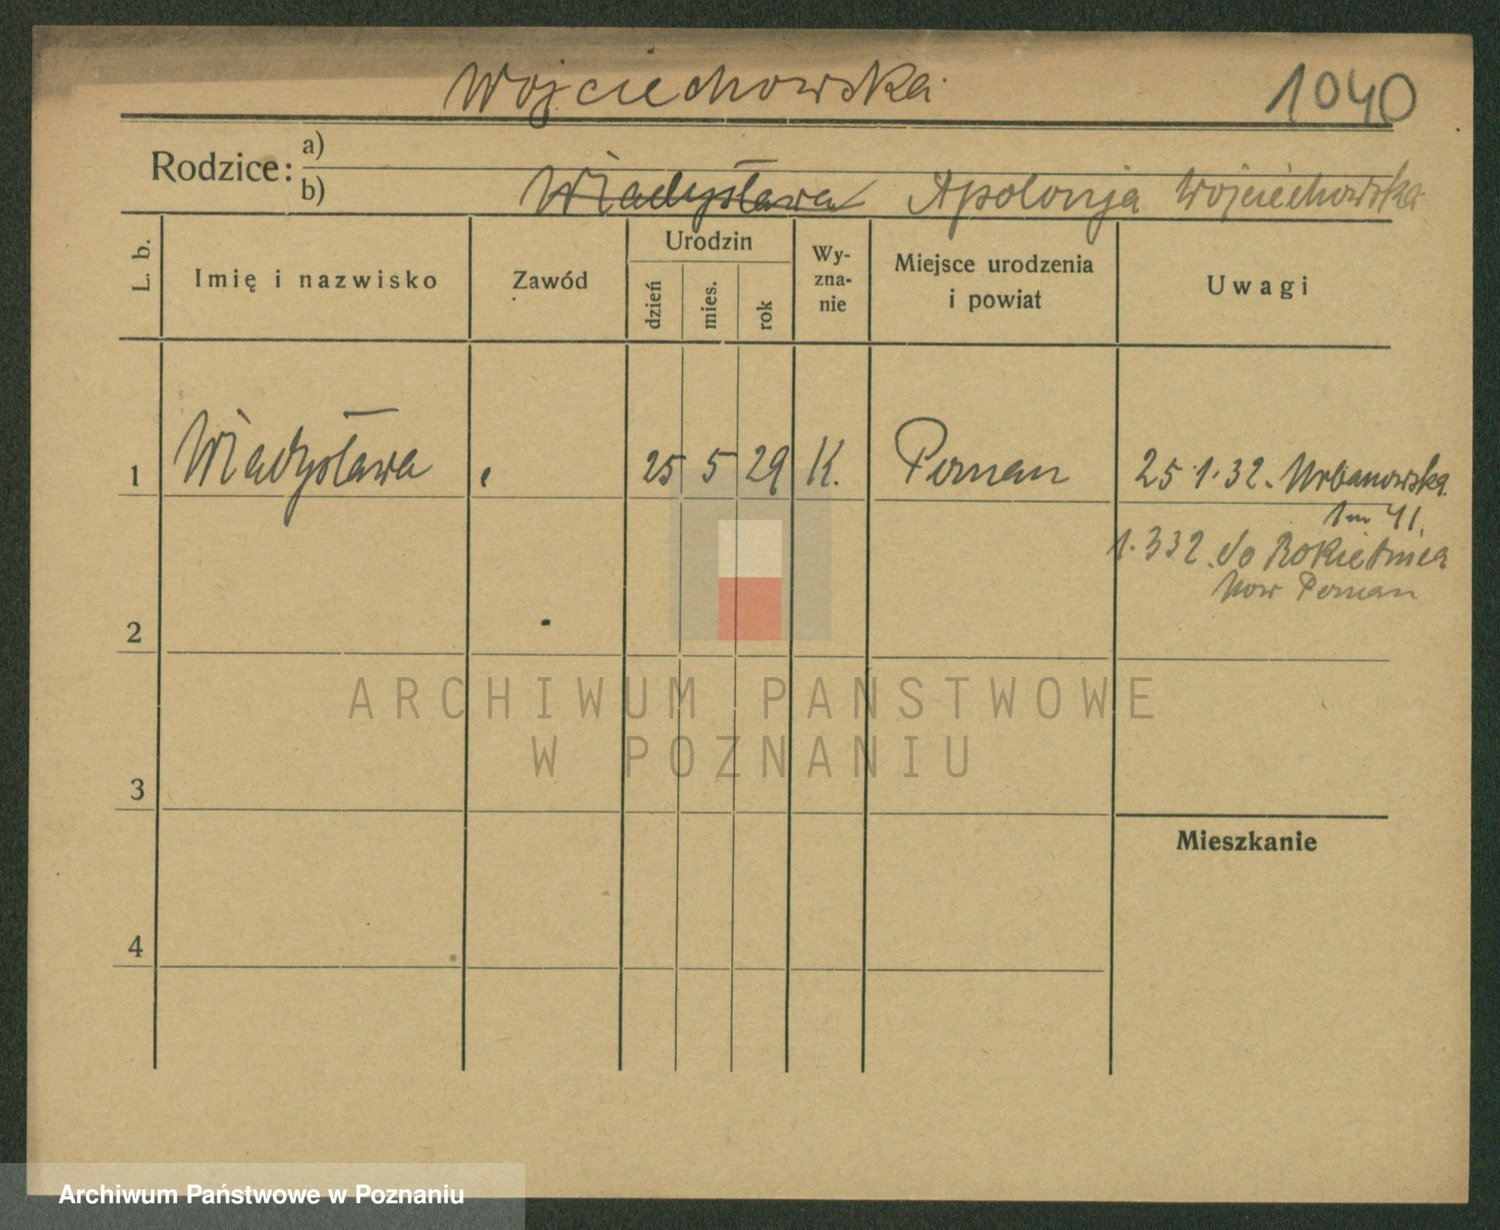 Wojciechowska 1040
Rodzice: a)
b) Władysława Apolonja Wojciechowska
L. b.
Imię i nazwisko
Zawód
Urodzin
dzień
mies.
rok
Wy-
zna-
nie
Miejsce urodzenia
i powiat
Uwagi
1 Władysława 25 5 29 K. Poznan 25.1.32. Urbanowska
1.332. do Rokietnica
pow Poznan
2
3
4
Mieszkanie
ARCHIWUM PAŃSTWOWE
W POZNANIU
Archiwum Państwowe w Poznaniu